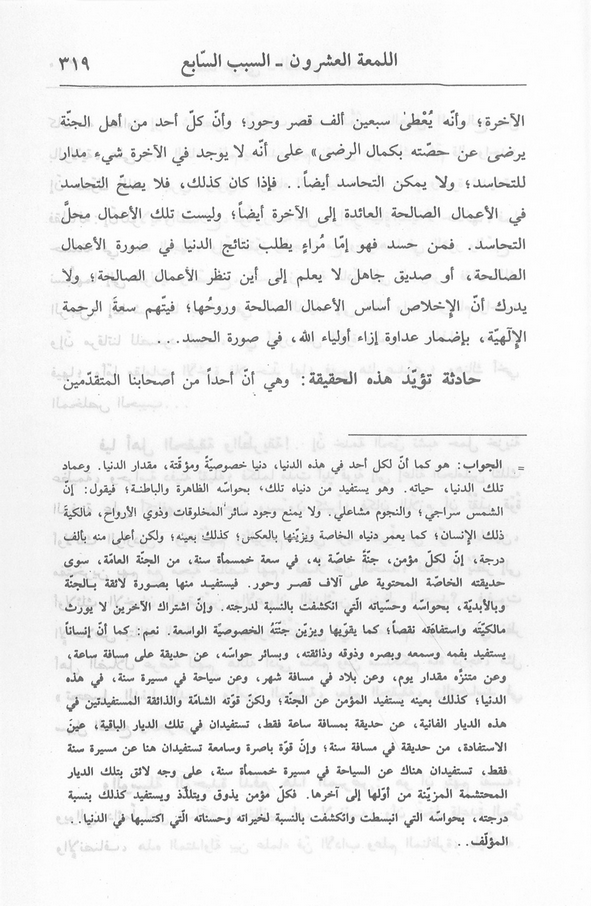 اللمعة العشرون - السبب السّابع ٣١٩
الآخرة؛ وأنّه يُعْطىٰ سبعين ألف قصر وحور؛ وأنّ كلّ أحد من أهل الجنّة
يرضى عن حصّته بكمال الرضى» على أنّه لا يوجد في الآخرة شيء مدار
للتحاسد؛ ولا يمكن التحاسد أيضاً.. فإذا كان كذلك، فلا يصحّ التحاسد
في الأعمال الصالحة العائدة إلى الآخرة أيضاً؛ وليست تلك الأعمال محلَّ
التحاسد. فمن حسد فهو إمّا مُراءٍ يطلب نتائج الدنيا في صورة الأعمال
الصالحة، أو صديق جاهل لا يعلم إلى أين تنظر الأعمال الصالحة؛ ولا
يدرك أنّ الإخلاص أساس الأعمال الصالحة وروحُها؛ فيتّهم سعةَ الرحمة
الإلٓهيّة، بإضمار عداوة إزاء أولياء الله، في صورة الحسد...
حادثة تؤيّد هذه الحقيقة: وهي أنّ أحداً من أصحابنا المتقدّمين
= الجواب: هو كما أنّ لكل أحد في هذه الدنيا، دنيا خصوصيّةً ومؤقّتة، مقدار الدنيا. وعماد
تلك الدنيا، حياته. وهو يستفيد من دنياه تلك، بحواسّه الظاهرة والباطنة؛ فيقول: إنّ
الشمس سراجي؛ والنجوم مشاعلي. ولا يمنع وجود سائر المخلوقات وذوي الأرواح، مالكيّةَ
ذلك الإنسان؛ كما يعمر دنياه الخاصة ويزيّنها بالعكس؛ كذلك بعينه؛ ولكن أعلى منه بألف
درجة، إنّ لكلّ مؤمن، جنّةً خاصّة به، في سعة خمسمأة سنة، من الجنّة العامّة، سوى
حديقته الخاصّة المحتوية على آلاف قصر وحور. فيستفيد منها بصورة لائقة بالجنّة
وبالأبديّة، بحواسّه وحسّياته الّتي انكشفت بالنسبة لدرجته. وإنّ اشتراك الآخرين لا يورث
مالكيّته واستفادته نقصاً؛ كما يقوّيها ويزيّن جنّتَهُ الخصوصيّة الواسعة. نعم: كما أنّ إنساناً
يستفيد بفمه وسمعه وبصره وذوقه وذائقته، وبسائر حواسّه، عن حديقة على مسافة ساعة،
وعن متنزَّه مقدار يوم، وعن بلاد في مسافة شهر، وعن سياحة في مسيرة سنة، في هذه
الدنيا؛ كذلك بعينه يستفيد المؤمن عن الجنّة؛ ولكنّ قوّته الشامّة والذائقة المستفيدتين في
هذه الديار الفانية، عن حديقة بمسافة ساعة فقط، تستفيدان في تلك الديار الباقية، عينَ
الاستفادة، من حديقة في مسافة سنة؛ وإنّ قوّة باصرة وسامعة تستفيدان هنا عن مسيرة سنة
فقط، تستفيدان هناك عن السياحة في مسيرة خمسمأة سنة، على وجه لائق بتلك الديار
المحتشمة المزيّنة من أوّلها إلى آخرها. فكلّ مؤمن يذوق ويتلذّذ ويستفيد كذلك بنسبة
درجته، بحواسّه التي انبسطت وانكشفت بالنسبة لخيراته وحسناته الّتي اكتسبها في الدنيا...
المؤلّف..